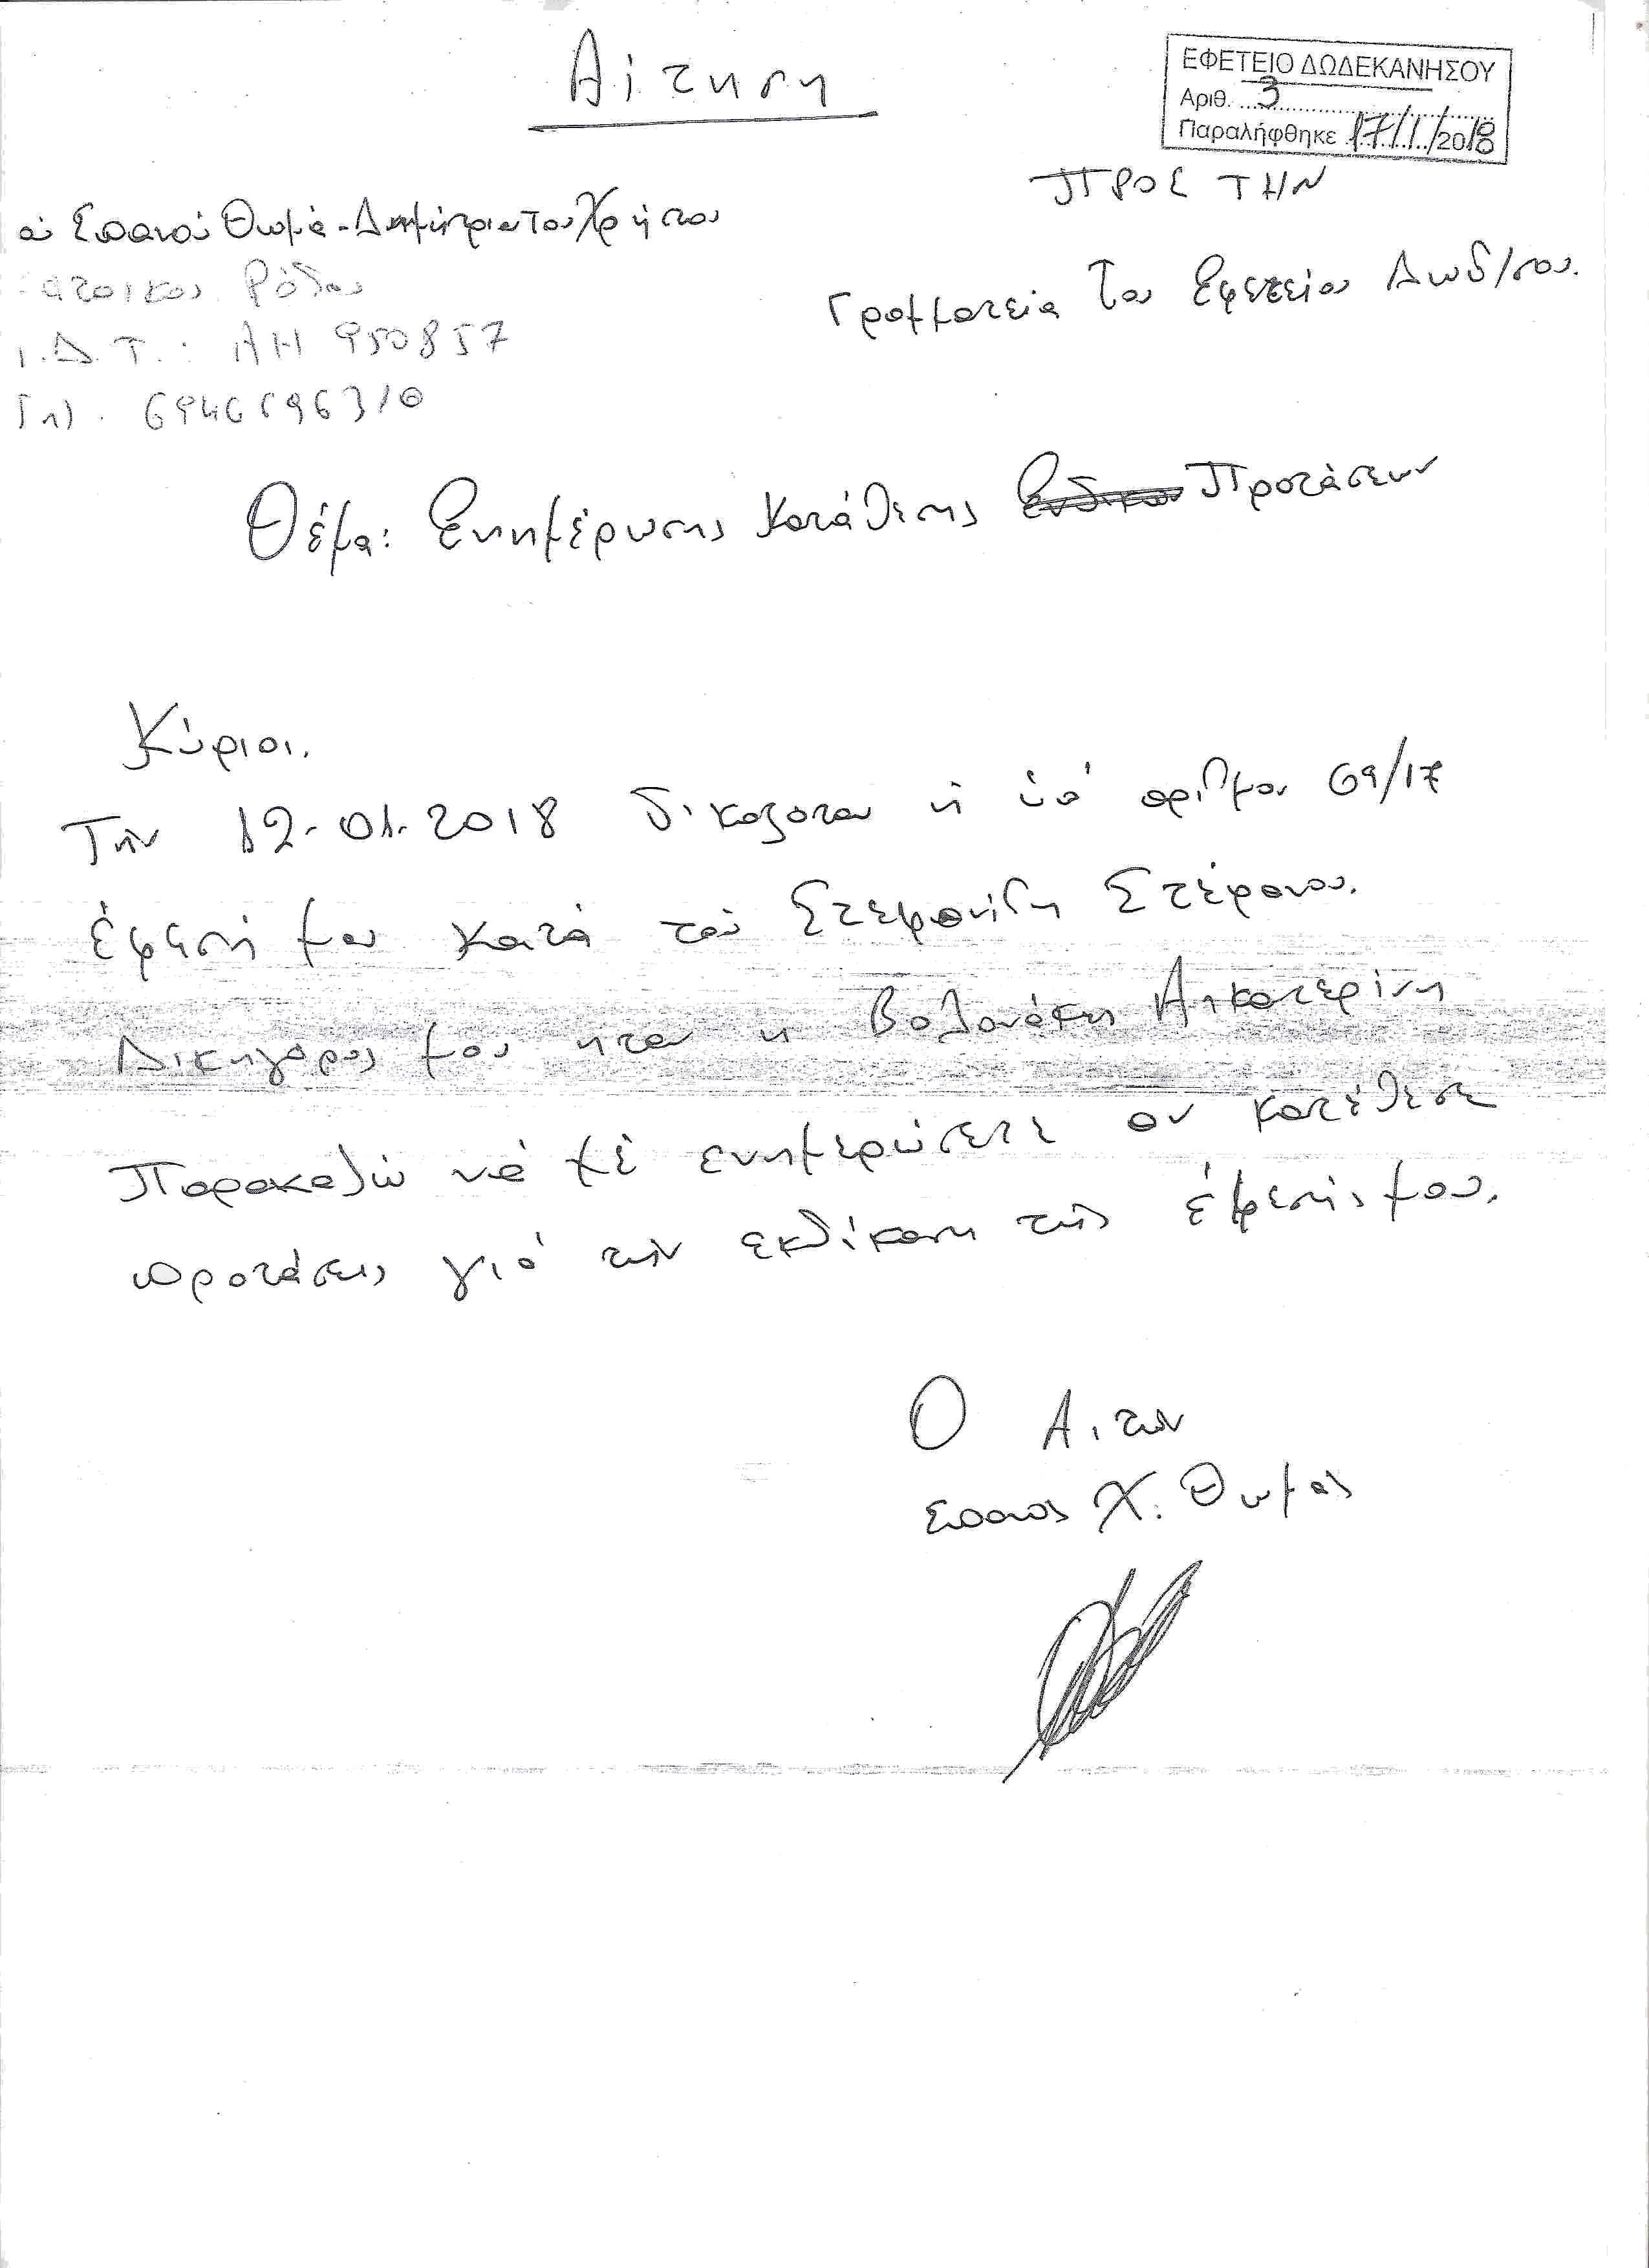 Αίτηση
ΕΦΕΤΕΙΟ ΔΩΔΕΚΑΝΗΣΟΥ
Αριθ. 3
Παραλήφθηκε 17/1/2018
ΠΡΟΣ ΤΗΝ
ού Σπανού Θωμά-Δημήτριου Του Χρήστου
Γραμματεία Του Εφετείου Δωδ/σου.
ατοικου Ρόδου
.Δ.Τ.: ΑΗ 950857
Τηλ. 6946696310
Θέμα: Ενημέρωσης Κατάθεσης Προτάσεων
Κύριοι.
Την 12-01-2018 δικαζοταν ή ύπ' αριθμον 69/17
έφεσή μου κατά τού Στεφανίδη Στέφανου.
Δικηγορος μου ηταν η Βολονάκη Αικατερίνη
Παρακαλώ νά μέ ενημερώσετε αν κατέθεσε
προτάσεις γιά τήν εκδίκαση τής έφεσής μου.
Ο Αιτών
Σπανος Χ. Θωμάς